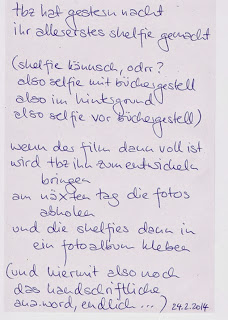 tbz hat gestern nacht
ihr allererstes shelfie gemacht
(shelfie kännsch, odrr?
also selfie mit büchergestell
also im hintergrund
also selfie vor büchergestell)
wenn des film dann voll ist
wird tbz ihn zum entwickeln
bringen
am näxten tag die fotos
abholen
und die shelfies dann in
ein fotoalbum kleben
(und hiermit also noch
das handschriftliche
anz.word, endlich ...) 24.2.2014